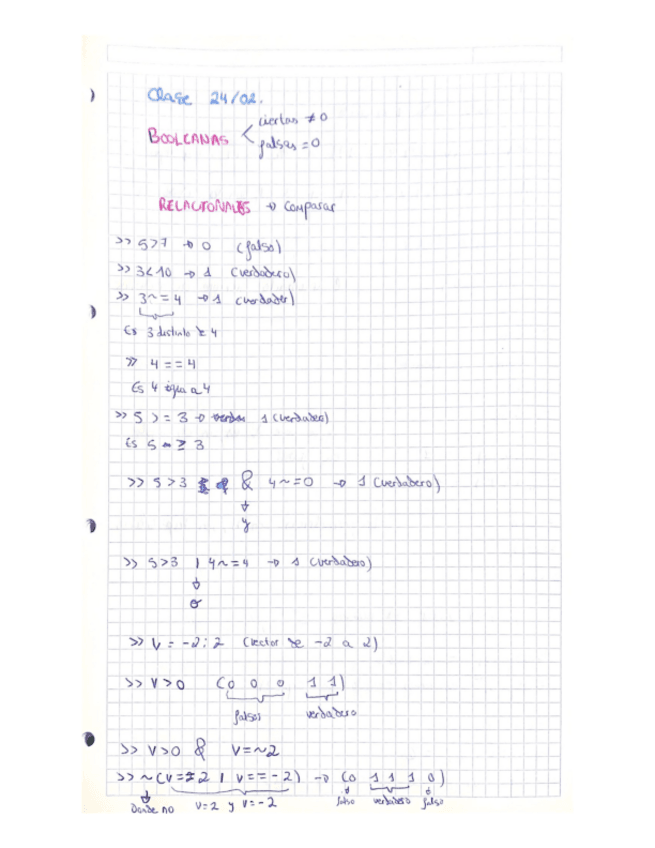 Clase 24/02.
BOOLEANAS ciertas ≠ 0
falsas = 0
RELACIONALES → comparar
>> 5>7 → 0 (falso)
>> 3<10 → 1 (verdadero)
>> 3~=4 → 1 (verdader)
Es 3 distinto de 4
>> 4==4
Es 4 igual a 4
>> 5 >= 3 → 1 (verdadero)
Es 5 ≥ 3
>> 5>3 & 4~=0 → 1 (verdadero)
↓
y
>> 5>3 | 4~=4 → 1 (verdadero)
↓
o
>> V = -2:2 (vector de -2 a 2)
>> V>0 (0 0 0 1 1)
falsos verdadero
>> V>0 & V=~2
>> ~(V==2 | V==-2) → (0 1 1 1 0)
Donde no V=2 y V=-2 falso verdadero falso